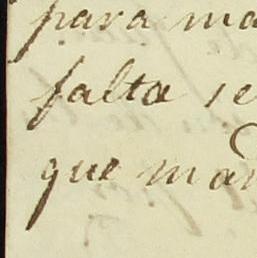 para ma
falta se
que man